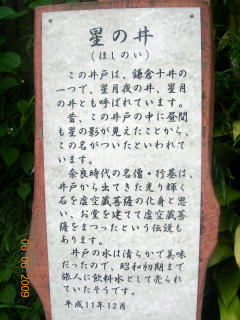 星の井
(ほしのい)
この井戸は、鎌倉十井の
一つで、星月夜の井、星月
の井とも呼ばれています。
昔、この井戸の中に昼間
も星の影が見えたことから、
この名がついたといわれて
います。
奈良時代の名僧・行基は、
井戸から出てきた光り輝く
石を虚空蔵菩薩の化身と思
い、お堂を建てて虚空蔵菩
薩をまつったという伝説も
あります。
井戸の水は清らかで美味
だったので、昭和初期まで
旅人に飲料水として売られ
ていたそうです。
平成11年12月
06/06/2009